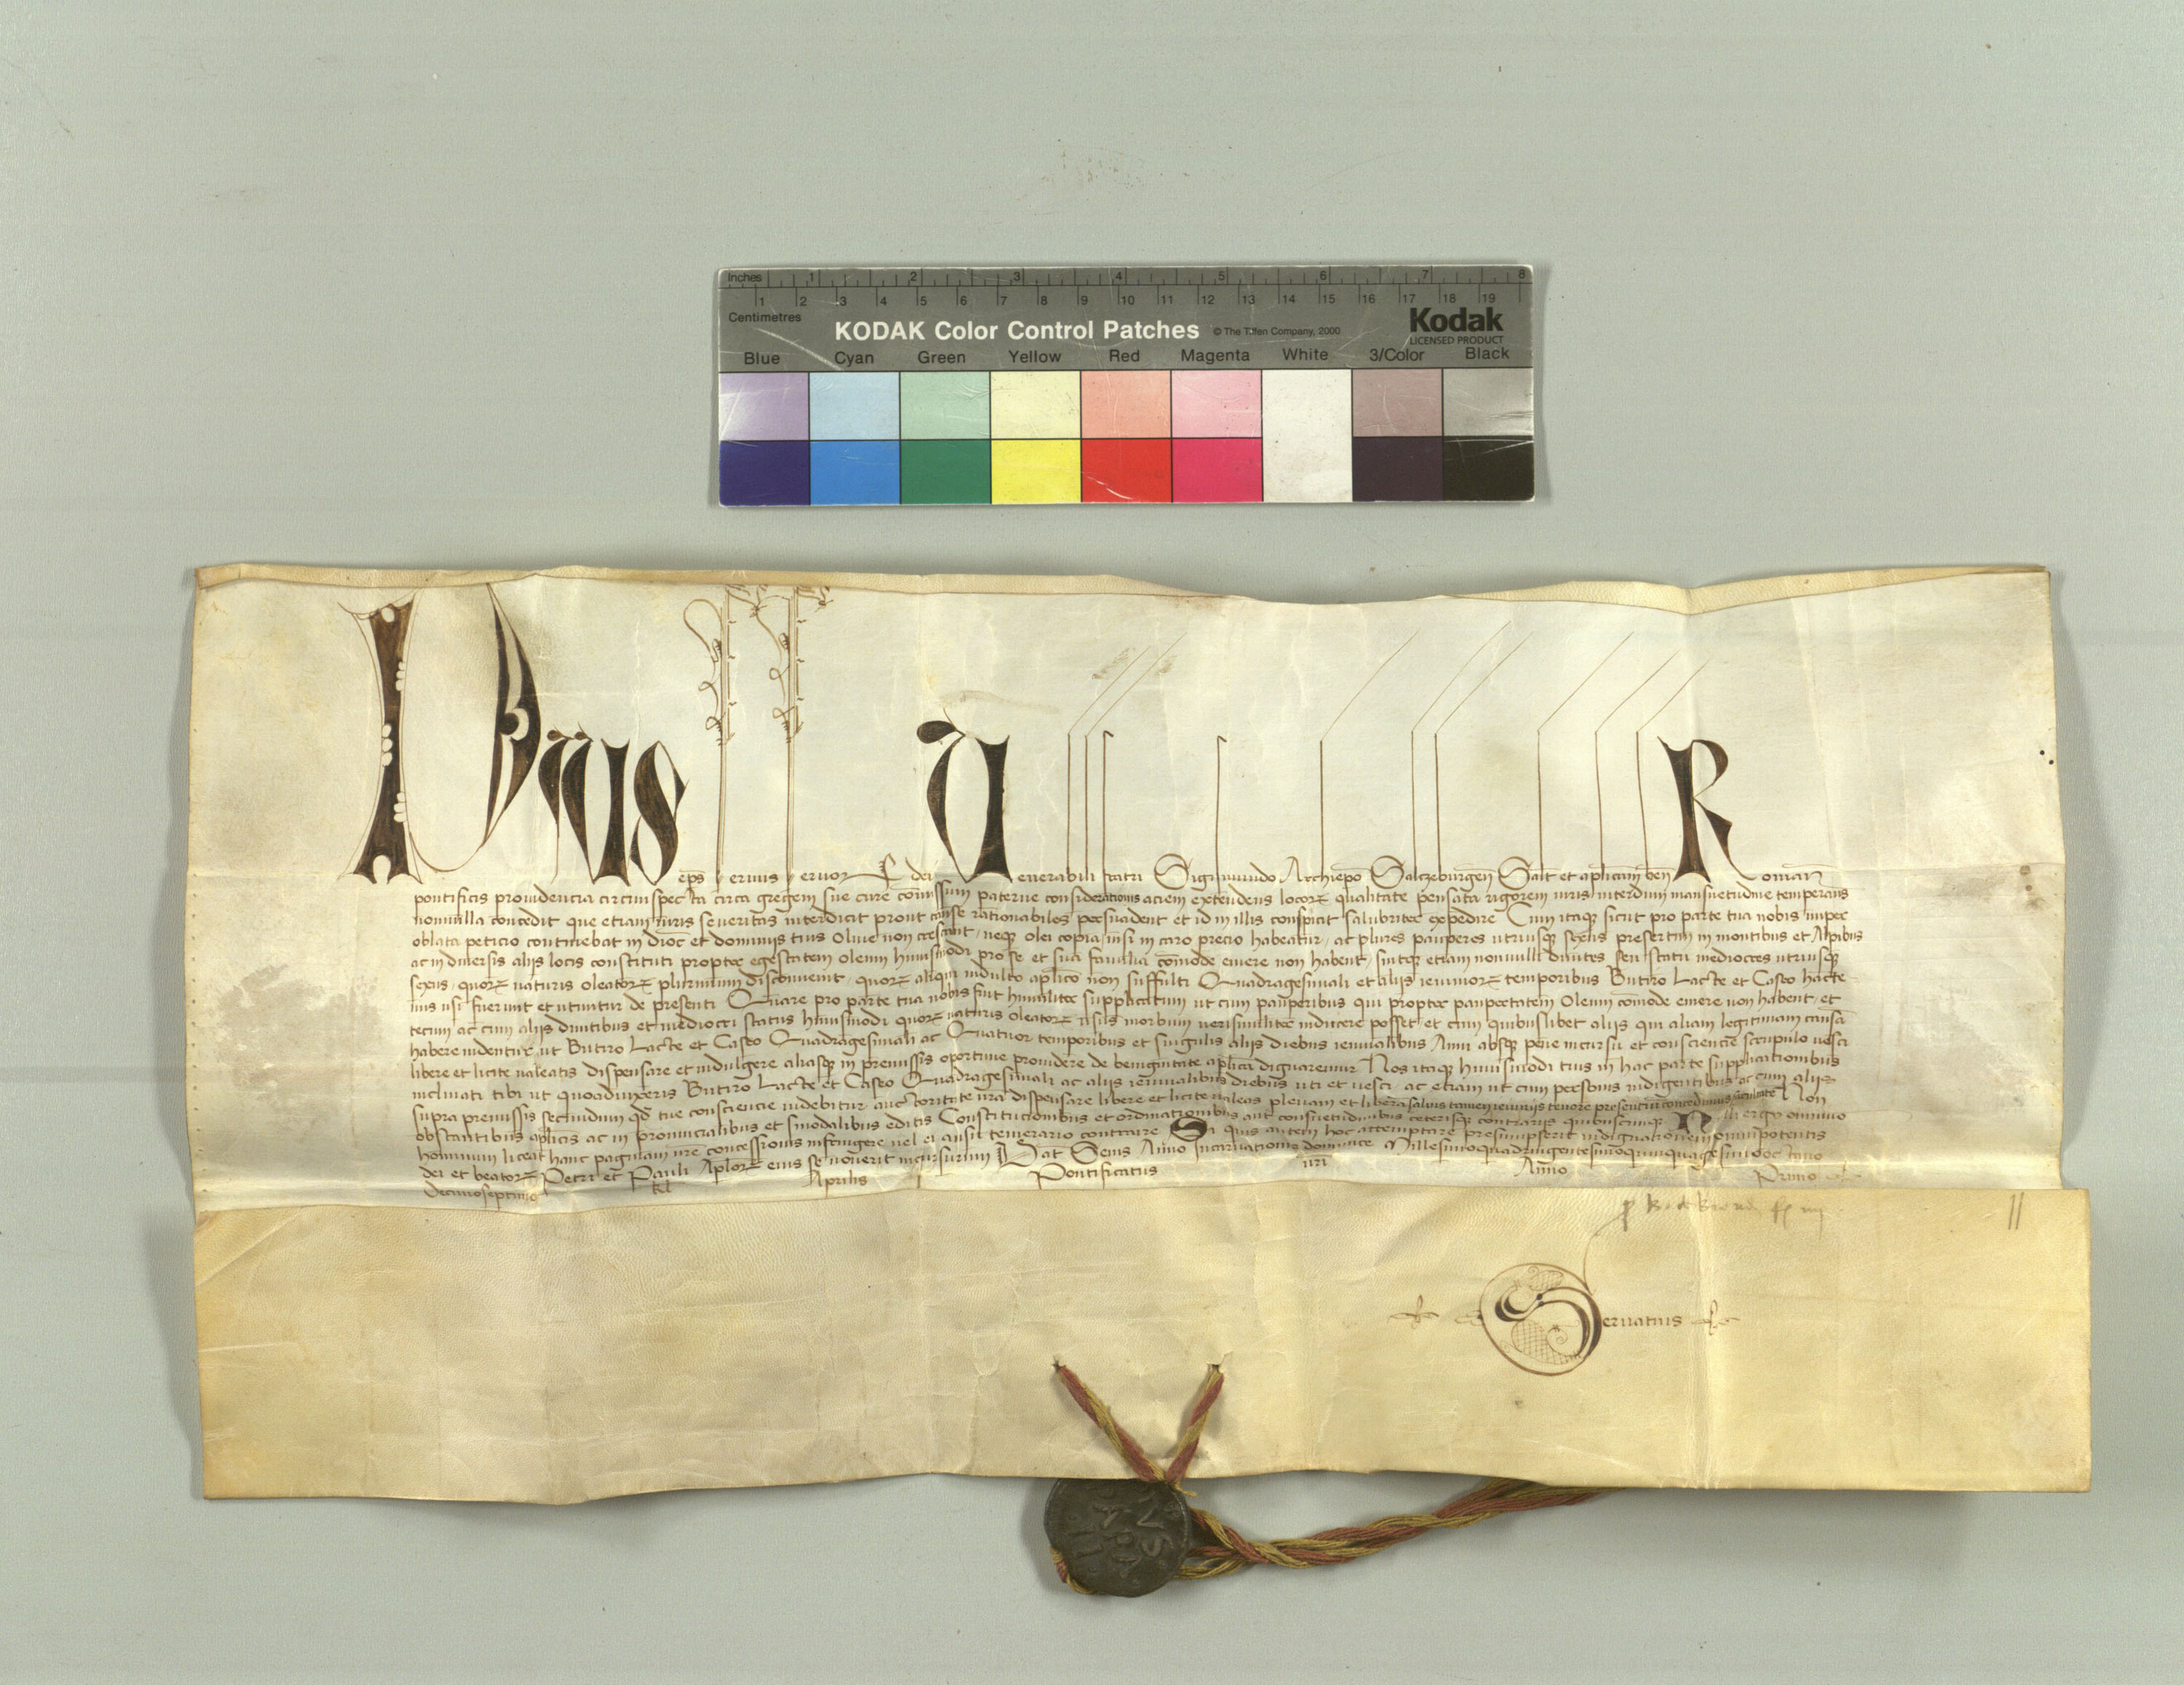 Inches 1 2 3 4 5 6 7 8
1 2 3 4 5 6 7 8 9 10 11 12 13 14 15 16 17 18 19
Centimetres
KODAK Color Control Patches © The Tiffen Company, 2000 Kodak
LICENSED PRODUCT
Blue Cyan Green Yellow Red Magenta White 3/Color Black
Pius ep̄s servus servorꝝ dei Venerabili fratri Sigismundo Archiep̄o Salczeburgen̄ Salt̄ et ap̄licam̄ ben̄ Roman̄
pontificis providencia circumspecta circa gregem sue cure com̄issum paterne considerationis aciem extendens locorꝝ qualitate pensata rigorem iuris interdum mansuetudine temperans
nonnulla concedit que etiam iuris severitas interdicit prout cause rationabiles persuadent et id in illis conspicit salubriter expedire Cum itaqꝫ sicut pro parte tua nobis nuper
oblata peticio continebat in dioc̄ et dominiis tuis Olive non crescant, neqꝫ olei copia, nisi in caro precio habeatur, ac plures pauperes utriusqꝫ sexus presertim in montibus et Alpibus
ac in diversis aliis locis constituti propter egestatem oleum huiusmodi pro se et sua familia com̄ode emere non habent, sintqꝫ etiam nonnulli divites seu status mediocres utriusqꝫ
sexus, quorꝝ naturis oleatorꝝ plurimum disconvenit, quorꝝ aliqui indulto ap̄lico non suffulti Quadragesimali et aliis ieiuniorꝝ temporibus Butiro Lacte et Caseo hacte
nus usi fuerunt et utuntur de presenti Quare pro parte tua nobis fuit humiliter supplicatum ut cum pauperibus qui propter paupertatem Oleum com̄ode emere non habent, et
tecum ac cum aliis divitibus et mediocri status huiusmodi quorꝝ naturis oleatorꝝ usus morbum verisimiliter inducere posset, et cum quibuslibet aliis qui aliam legitimam causā
habere videntur, ut Butiro Lacte et Caseo Quadragesimali ac Quatuor temporibus et singulis aliis diebus ieiunalibus Anni absqꝫ pene incursu et consciencie scrupulo vesci
libere et licite valeatis dispensare et indulgere aliasqꝫ in premissis oportune providere de benignitate ap̄lica dignaremur Nos itaqꝫ huiusmodi tuis in hac parte supplicationibus
inclinati tibi ut quoadvixeris Butiro Lacte et Caseo Quadragesimali ac aliis ieiunalibus diebus uti et vesci, ac etiam ut cum personis indigentibus ac cum aliis
supra premissis secundum qd̄ tue consciencie videbitur auctoritate nr̄a dispensare libere et licite valeas plenam et liberā salvis tamen ieiuniis tenore presentiū concedimus facultatē Non
obstantibus ap̄licis ac in provincialibus et sinodalibus editis Constitucionibus et ordinationibus aut consuetudinibus ceterisqꝫ contrariis quibuscunqꝫ Nulli ergo omnino
hominum liceat hanc paginam nr̄e concessionis infringere vel ei ausu temerario contraire Si quis autem hoc attemptare presumpserit indignationem omnipotentis
dei et beatorꝝ Petri et Pauli Ap̄lorꝝ eius se noverit incursurum Dat Senis Anno Incarnationis dominice Millesimoquadringentesimoquinquagesimooctavo
Decimoseptimo kl̄ Aprilis Pontificatus nr̄i Anno Primo
Servatius
VS
II